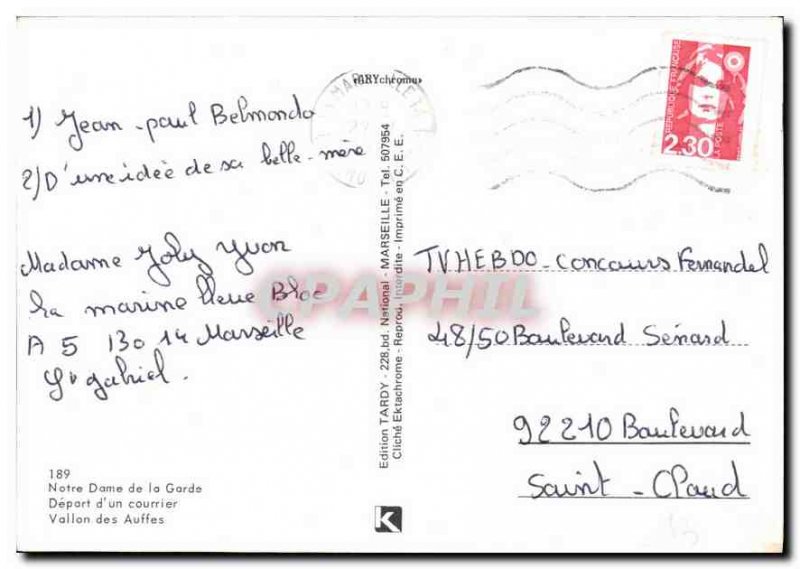 «ARYchrome»
1) Jean-paul Belmondo
2) D'une idée de sa belle-mère
Madame Joly Yvon
La marine bleue Bloc
A 5 13014 Marseille
St gabriel.
189
Notre Dame de la Garde
Départ d'un courrier
Vallon des Auffes
Edition TARDY - 228,bd. National - MARSEILLE - Tel. 507954
Cliché Ektachrome - Reprod. Interdite - Imprimé en C.E.E.
K
CPAPHIL
REPUBLIQUE FRANÇAISE
2,30
LA POSTE
TVHEBDO-Concours Fernandel
48/50 Boulevard Sénard
92210 Boulevard
Saint-Cloud